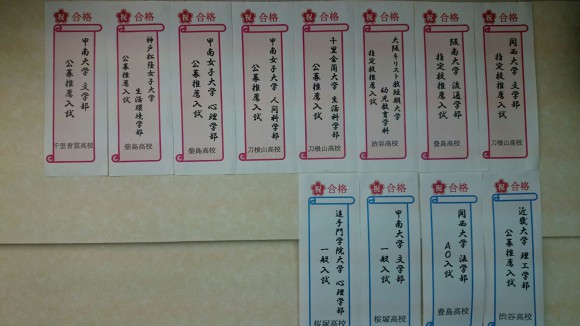 祝 合格
甲南大学 文学部
公募推薦入試
千里青雲高校
祝 合格
神戸松蔭女子大学
生活環境学部
公募推薦入試
柴島高校
祝 合格
甲南女子大学 心理学部
公募推薦入試
柴島高校
祝 合格
甲南女子大学 人間科学部
公募推薦入試
刀根山高校
祝 合格
千里金蘭大学 生活科学部
公募推薦入試
刀根山高校
祝 合格
大阪キリスト教短期大学
幼児教育学科
指定校推薦入試
渋谷高校
祝 合格
阪南大学 流通学部
指定校推薦入試
豊島高校
祝 合格
関西大学 文学部
指定校推薦入試
刀根山高校
祝 合格
追手門学院大学 心理学部
一般入試
桜塚高校
祝 合格
甲南大学 文学部
一般入試
桜塚高校
祝 合格
関西大学 法学部
AO入試
豊島高校
祝 合格
近畿大学 理工学部
公募推薦入試
渋谷高校